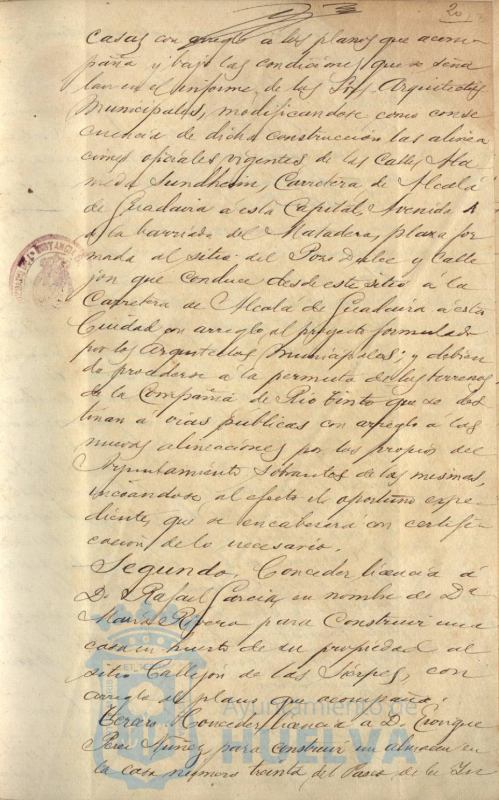 20
casas con arreglo á los planos que acom-
paña y bajo las condiciones que se seña
lan en el informe de los Sres Arquitectos
Municipales, modificandose como conse
cuencia de dicha construcción las alinea
ciones oficiales vigentes de las Calles Ala
meda Sundheim, Carretera de Alcalá
de Guadaira á esta Capital, Avenida A
a la barriada del Matadero, plaza for
mada al sitio del Pozo Dulce y Calle
jon que conduce desde este sitio a la
Carretera de Alcalá de Guadaira á esta
Ciudad con arreglo al proyecto formulado
por los Arquitectos Municipales; y debien
do procederse a la permuta de los terrenos
de la Compañia de Rio Tinto que se des
tinan a vias publicas con arreglo a las
nuevas alineaciones por los propios del
Ayuntamiento sobrantes de las mismas,
incoándose al efecto el oportuno expe-
diente, que se encabezará con certifi-
cación de lo necesario.
Segundo. Conceder licencia á
D. Rafael Garcia, en nombre de Dª
Maria Rivero para construir una
casa en huerto de su propiedad al
sitio Callejón de las Sierpes, con
arreglo al plano que acompaña.
Tercero. Conceder licencia a D. Enrique
Perez Nuñez para construir un almacen en
la casa número treinta del Paseo de la In
Ayuntamiento de
HUELVA